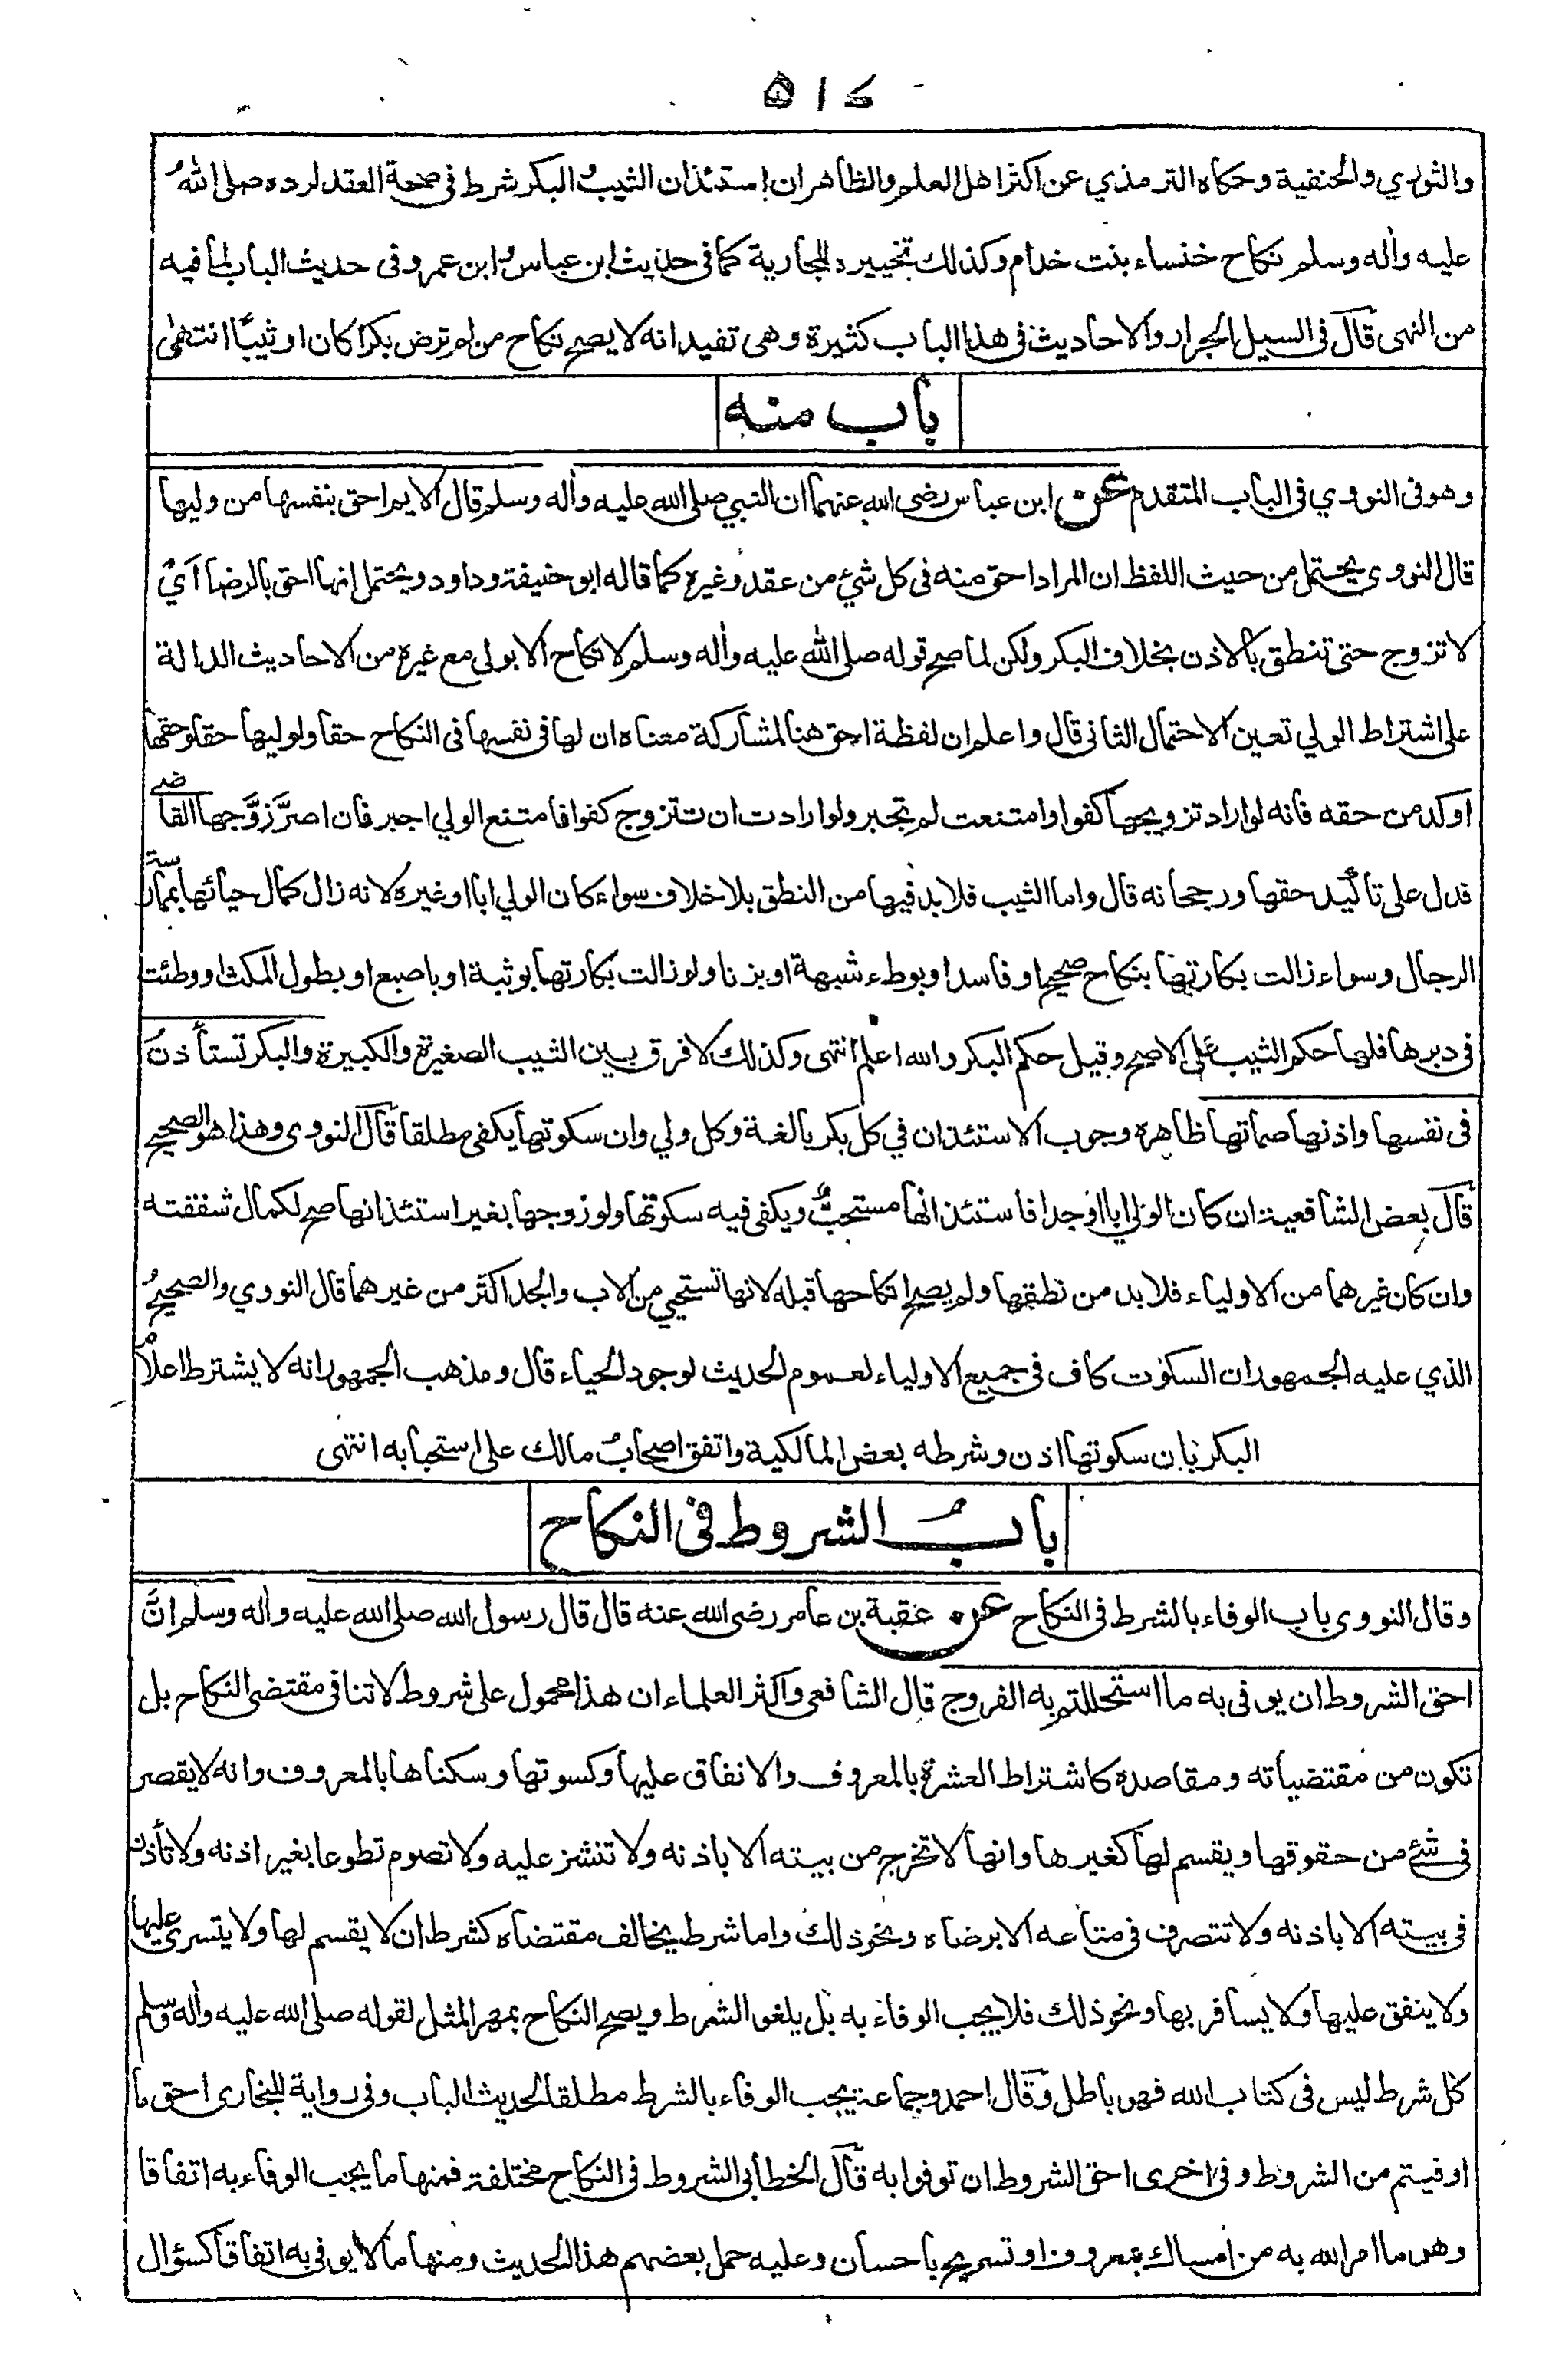 ٥١٤
والثوري والحنفية وحكاه الترمذي عن اكثر اهل العلم والظاهر ان استئذان الثيب والبكر شرط في صحة العقد لرده صلى الله
عليه واله وسلم نكاح خنساء بنت خدام وكذلك تخييره للجارية كما فى حديث ابن عباس وابن عمر وفى حديث الباب لما فيه
من النهى قال فى السيل الجرار والاحاديث فى هذا الباب كثيرة وهى تفيد انه لا يصح نكاح من لم ترض بكرا كان او ثيبًا انتهى
باب منه
وهو فى النووي فى الباب المتقدم عن ابن عباس رضى الله عنهما ان النبي صلى الله عليه واله وسلم قال الايم احق بنفسها من وليها
قال النووى يحتمل من حيث اللفظ ان المراد احق منه فى كل شيء من عقد وغيره كما قاله ابو حنيفة وداود ويحتمل انها احق بالرضا اي
لا تزوج حتى تنطق بالاذن بخلاف البكر ولكن لما صح قوله صلى الله عليه واله وسلم لا نكاح الا بولى مع غيره من الاحاديث الدالة
على اشتراط الولي تعين الاحتمال الثانى قال واعلم ان لفظة احق هنا لمشاركة معناه ان لها فى نفسها فى النكاح حقا ولوليها حقا وحقها
اوكد من حقه فانه لو اراد تزويجها كفوا وامتنعت لم تجبر ولو ارادت ان تتزوج كفوا فامتنع الولي اجبر فان اصرَّ زوَّجها القاضي
فدل على تاكيد حقها ورجحانه قال واما الثيب فلا بد فيها من النطق بلا خلاف سواء كان الولي ابا او غيره لانه زال كمال حيائها بممارسة
الرجال وسواء زالت بكارتها بنكاح صحيح او فاسد او بوطء شبهة او بزنا ولو زالت بكارتها بوثبة او باصبع او بطول المكث او وطئت
فى دبرها فلها حكم الثيب على الاصح وقيل حكم البكر والله اعلم انتهى وكذلك لا فرق بين الثيب الصغيرة والكبيرة والبكر تستأذن
فى نفسها واذنها صماتها ظاهره وجوب الاستئذان في كل بكر بالغة وكل ولي وان سكوتها يكفى مطلقا قال النووى وهذا هو الصحيح
قال بعض الشافعية ان كان الولي ابا او جدا فاستئذانها مستحبٌّ ويكفى فيه سكوتها ولو زوجها بغير استئذانها صح لكمال شفقته
وان كان غيرهما من الاولياء فلا بد من نطقها ولم يصح انكاحها قبله لانها تستحيي من الاب والجد اكثر من غيرهما قال النووي والصحيح
الذي عليه الجمهور ان السكوت كاف فى جميع الاولياء لعموم الحديث لوجود الحياء قال ومذهب الجمهور انه لا يشترط اعلام
البكر بان سكوتها اذن وشرطه بعض المالكية واتفق اصحاب مالك على استحبابه انتهى
باب الشروط فى النكاح
وقال النووى باب الوفاء بالشرط فى النكاح عن عقبة بن عامر رضى الله عنه قال قال رسول الله صلى الله عليه واله وسلم انَّ
احق الشروط ان يوفى به ما استحللتم به الفروج قال الشافعى واكثر العلماء ان هذا محمول على شروط لا تنافى مقتضى النكاح بل
تكون من مقتضياته ومقاصده كاشتراط العشرة بالمعروف والانفاق عليها وكسوتها وسكناها بالمعروف وانه لا يقصر
فى شئ من حقوقها ويقسم لها كغيرها وانها لا تخرج من بيته الا باذنه ولا تنشز عليه ولا تصوم تطوعا بغير اذنه ولا تأذن
فى بيته الا باذنه ولا تتصرف فى متاعه الا برضاه ونحو ذلك واما شرط يخالف مقتضاه كشرط ان لا يقسم لها ولا يتسرى عليها
ولا ينفق عليها ولا يسافر بها ونحو ذلك فلا يجب الوفاء به بل يلغو الشرط ويصح النكاح بمهر المثل لقوله صلى الله عليه واله وسلم
كل شرط ليس فى كتاب الله فهو باطل وقال احمد وجماعة يجب الوفاء بالشرط مطلقا لحديث الباب وفى رواية للبخارى احق ما
اوفيتم من الشروط وفى اخرى احق الشروط ان توفوا به قال الخطابى الشروط فى النكاح مختلفة فمنها ما يجب الوفاء به اتفاقا
وهو ما امر الله به من امساك بمعروف او تسريح باحسان وعليه حمل بعضهم هذا الحديث ومنها ما لا يوفى به اتفاقا كسؤال